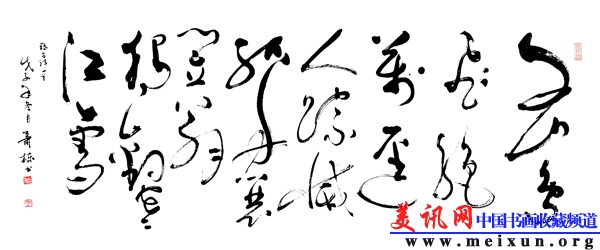 千山鳥
飛絕
萬逕
人踪滅
孤舟蓑
笠翁
獨釣寒
江雪
戊子年冬月
美讯网 中国书画收藏频道
www.meixun.org